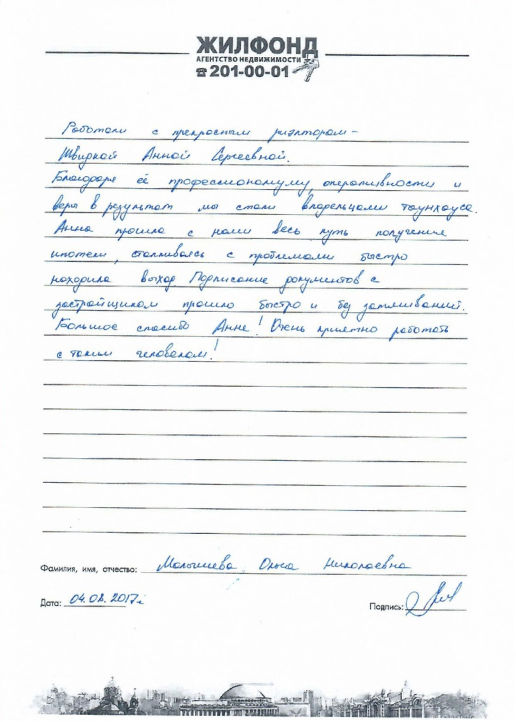 ЖИЛФОНД
АГЕНТСТВО НЕДВИЖИМОСТИ
☎ 201-00-01
Работали с прекрасным риэлтором -
Швидкой Анной Сергеевной.
Благодаря её профессионализму, оперативности и
вере в результат мы стали владельцами таунхауса.
Анна прошла с нами весь путь получения
ипотеки, сталкиваясь с проблемами быстро
находила выход. Подписание документов с
застройщиком прошло быстро и без затягиваний.
Большое спасибо Анне! Очень приятно работать
с таким человеком!
Фамилия, имя, отчество: Малышева Ольга Николаевна
Дата: 04.02.2017г.
Подпись: